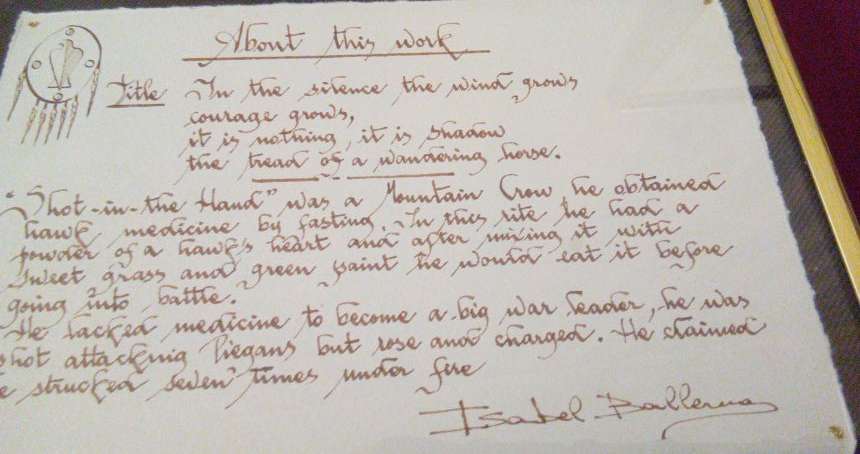 About this work
Title In the silence the wind grows
courage grows,
it is nothing, it is shadow
the tread of a wandering horse.
"Shot-in-the Hand" was a Mountain Crow he obtained
hawk medicine by fasting. In this rite he had a
powder of a hawk's heart and after mixing it with
sweet grass and green paint he would eat it before
going into battle.
He lacked medicine to become a big war leader, he was
shot attacking Piegans but rose and charged. He claimed
e strucked seven times under fire
Isabel Ballerna